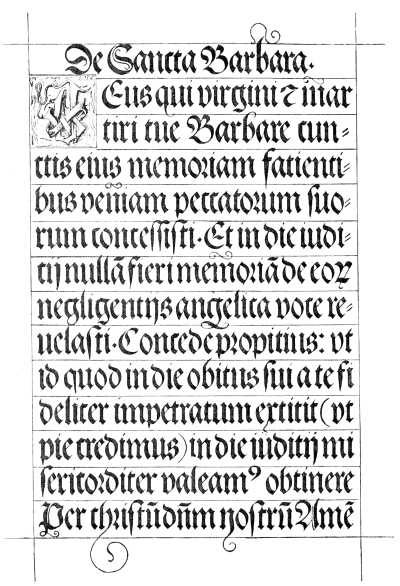 De Sancta Barbara.
Deus qui virgini ⁊ m̄ar
tiri tue Barbare cun⸗
ctis eius memoriam facienti⸗
bus veniam peccatorum suo⸗
rum concessisti. Et in die iudi⸗
cij nullā fieri memoriā de eoꝝ
negligentijs angelica voce re⸗
uelasti. Concede propitius: vt
id quod in die obitus sui a te fi
deliter impetratum extitit (vt
pie credimus) in die iuditij mi
sericorditer valeamꝰ obtinere
Per christū dn̄m nostrū Amē